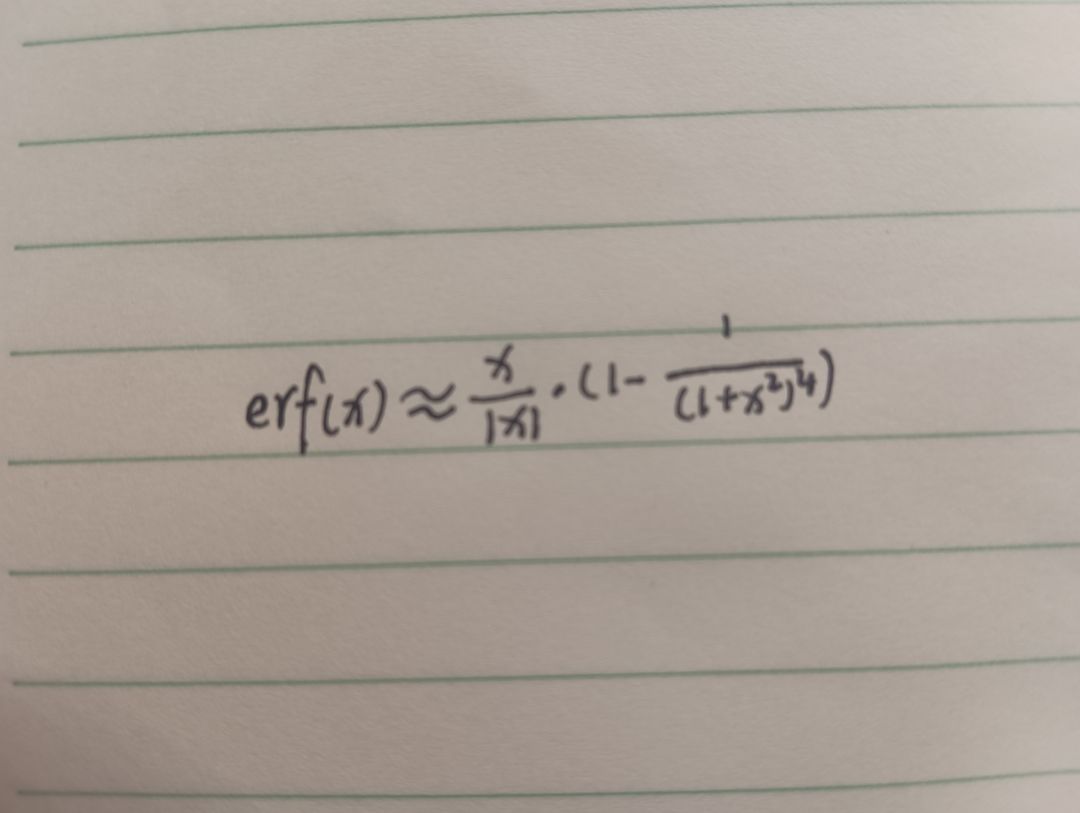 erf(x) ≈ x/|x| · (1 - 1/(1+x²)⁴)